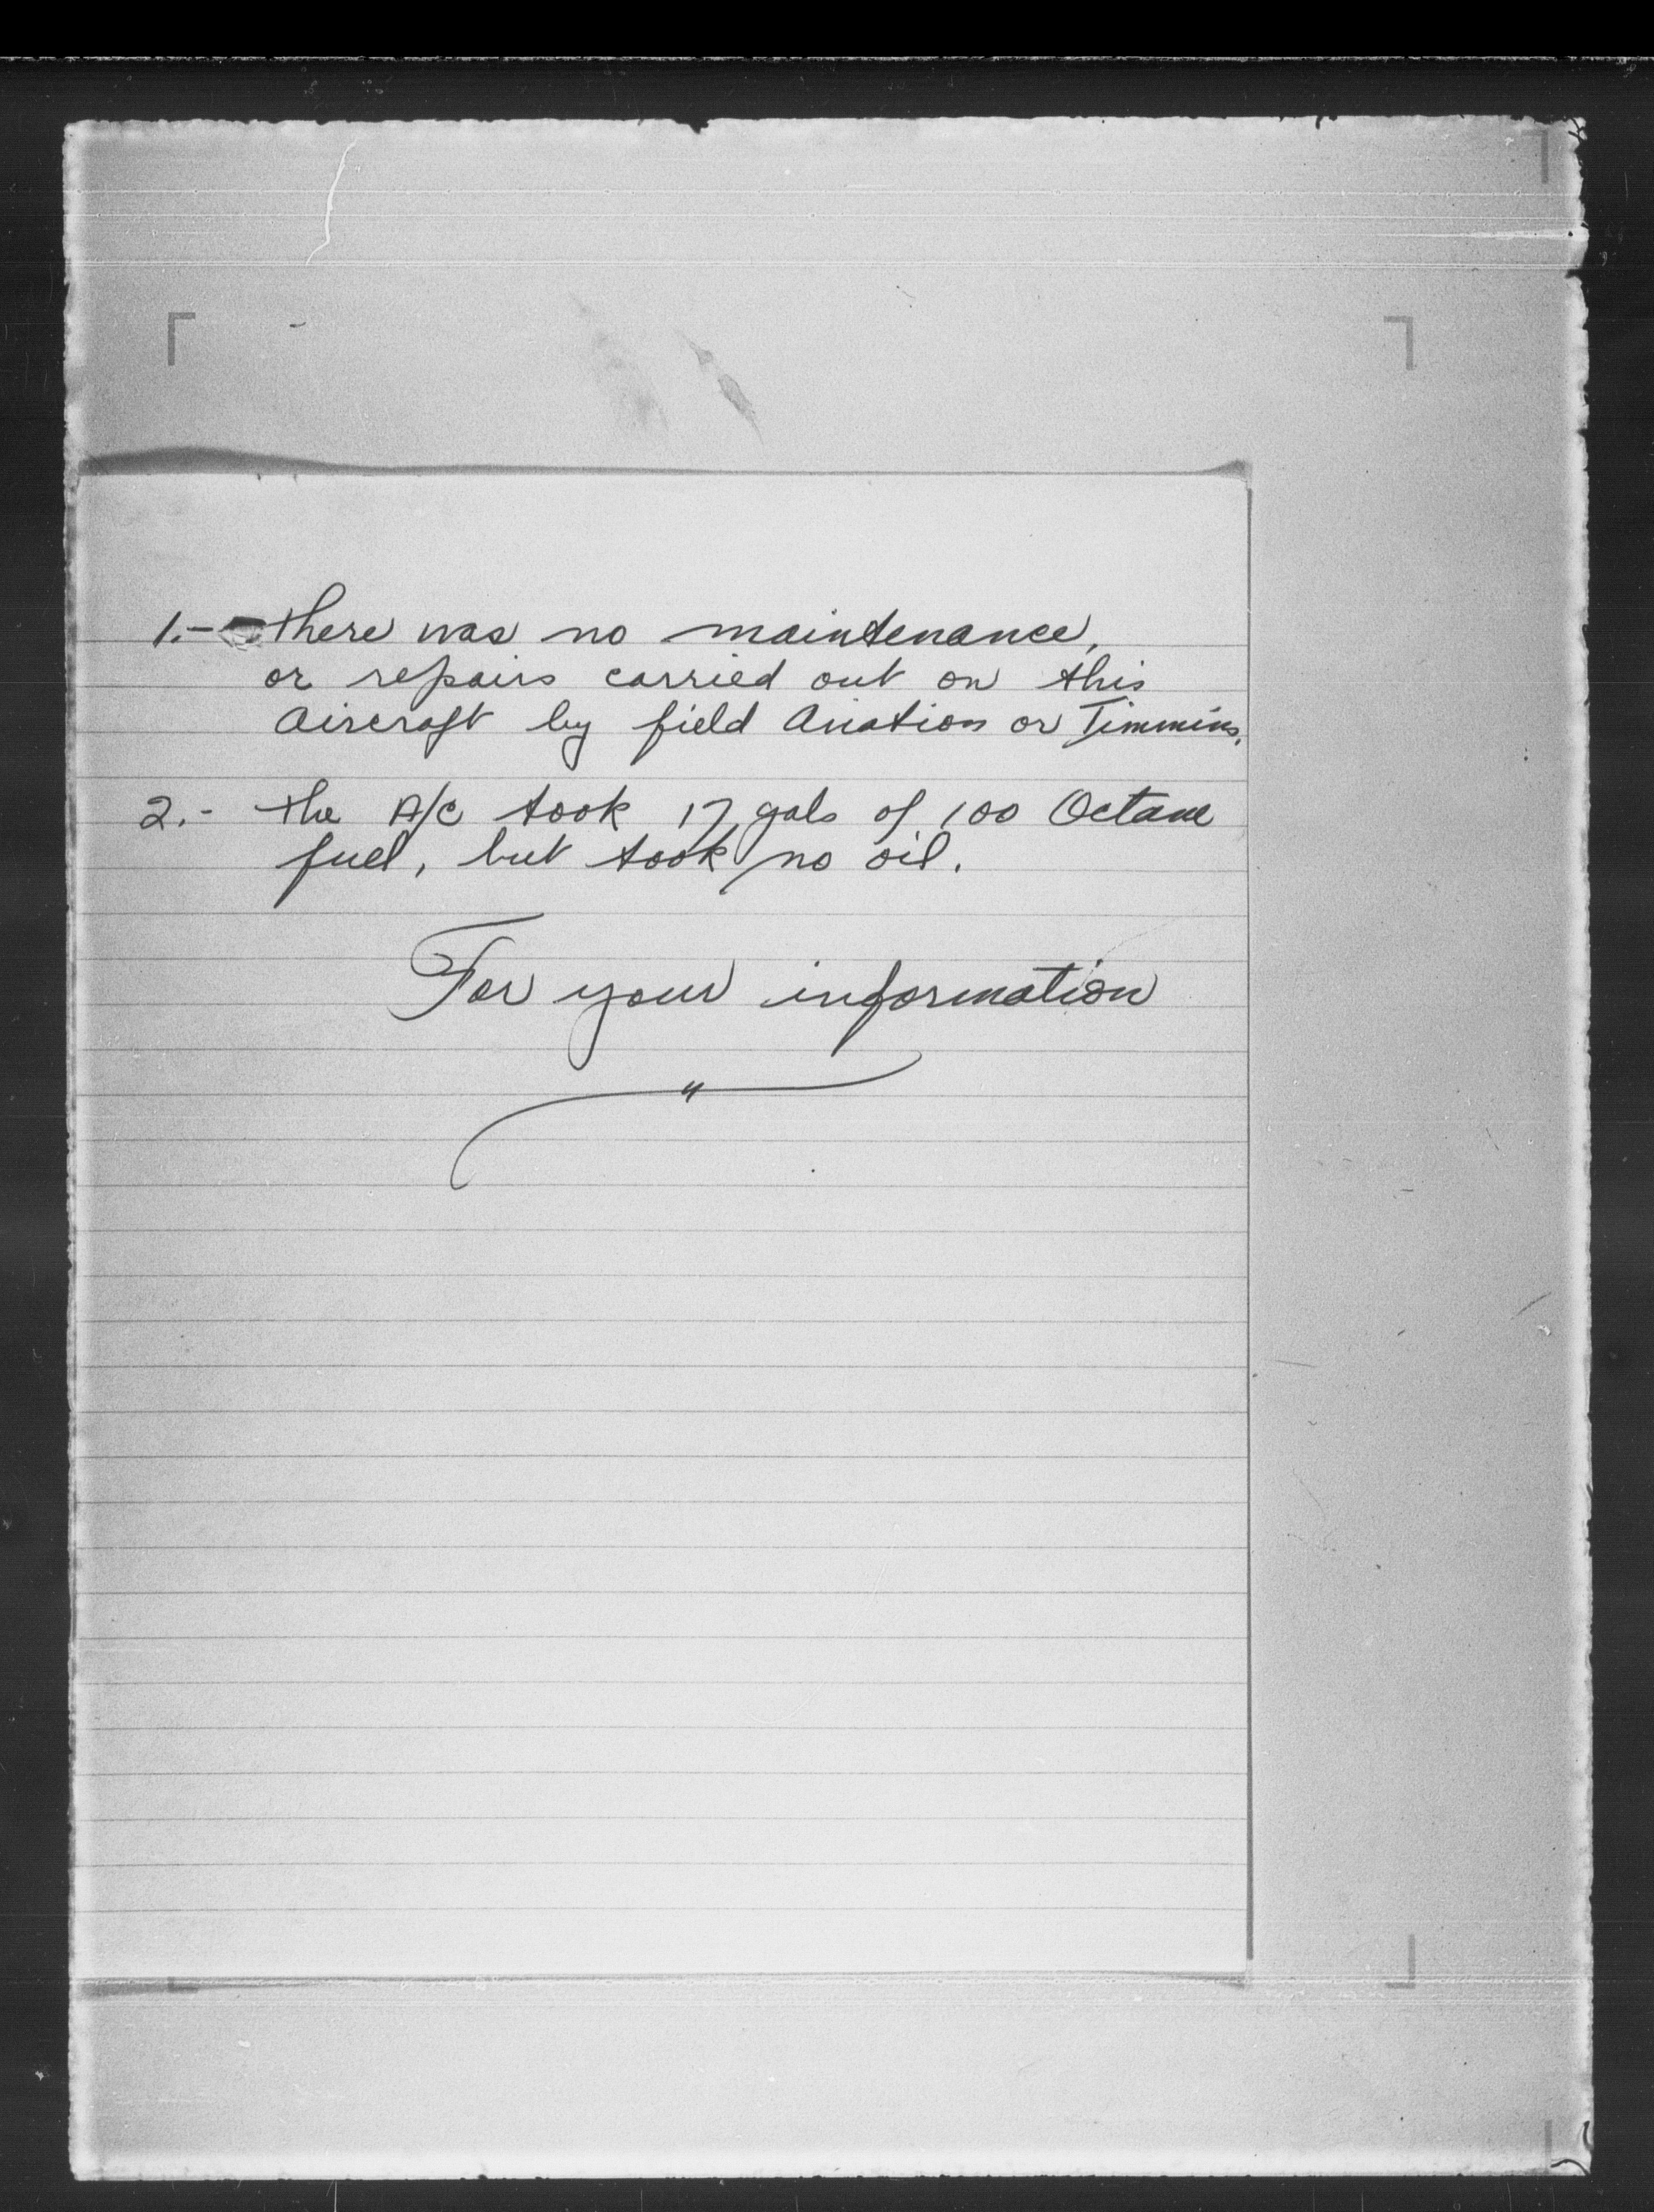 1.- there was no maintenance,
or repairs carried out on this
Aircraft by field Aviation or Timmins.
2.- the A/C took 17 gals of 100 Octane
fuel, but took no oil.
For your information
"